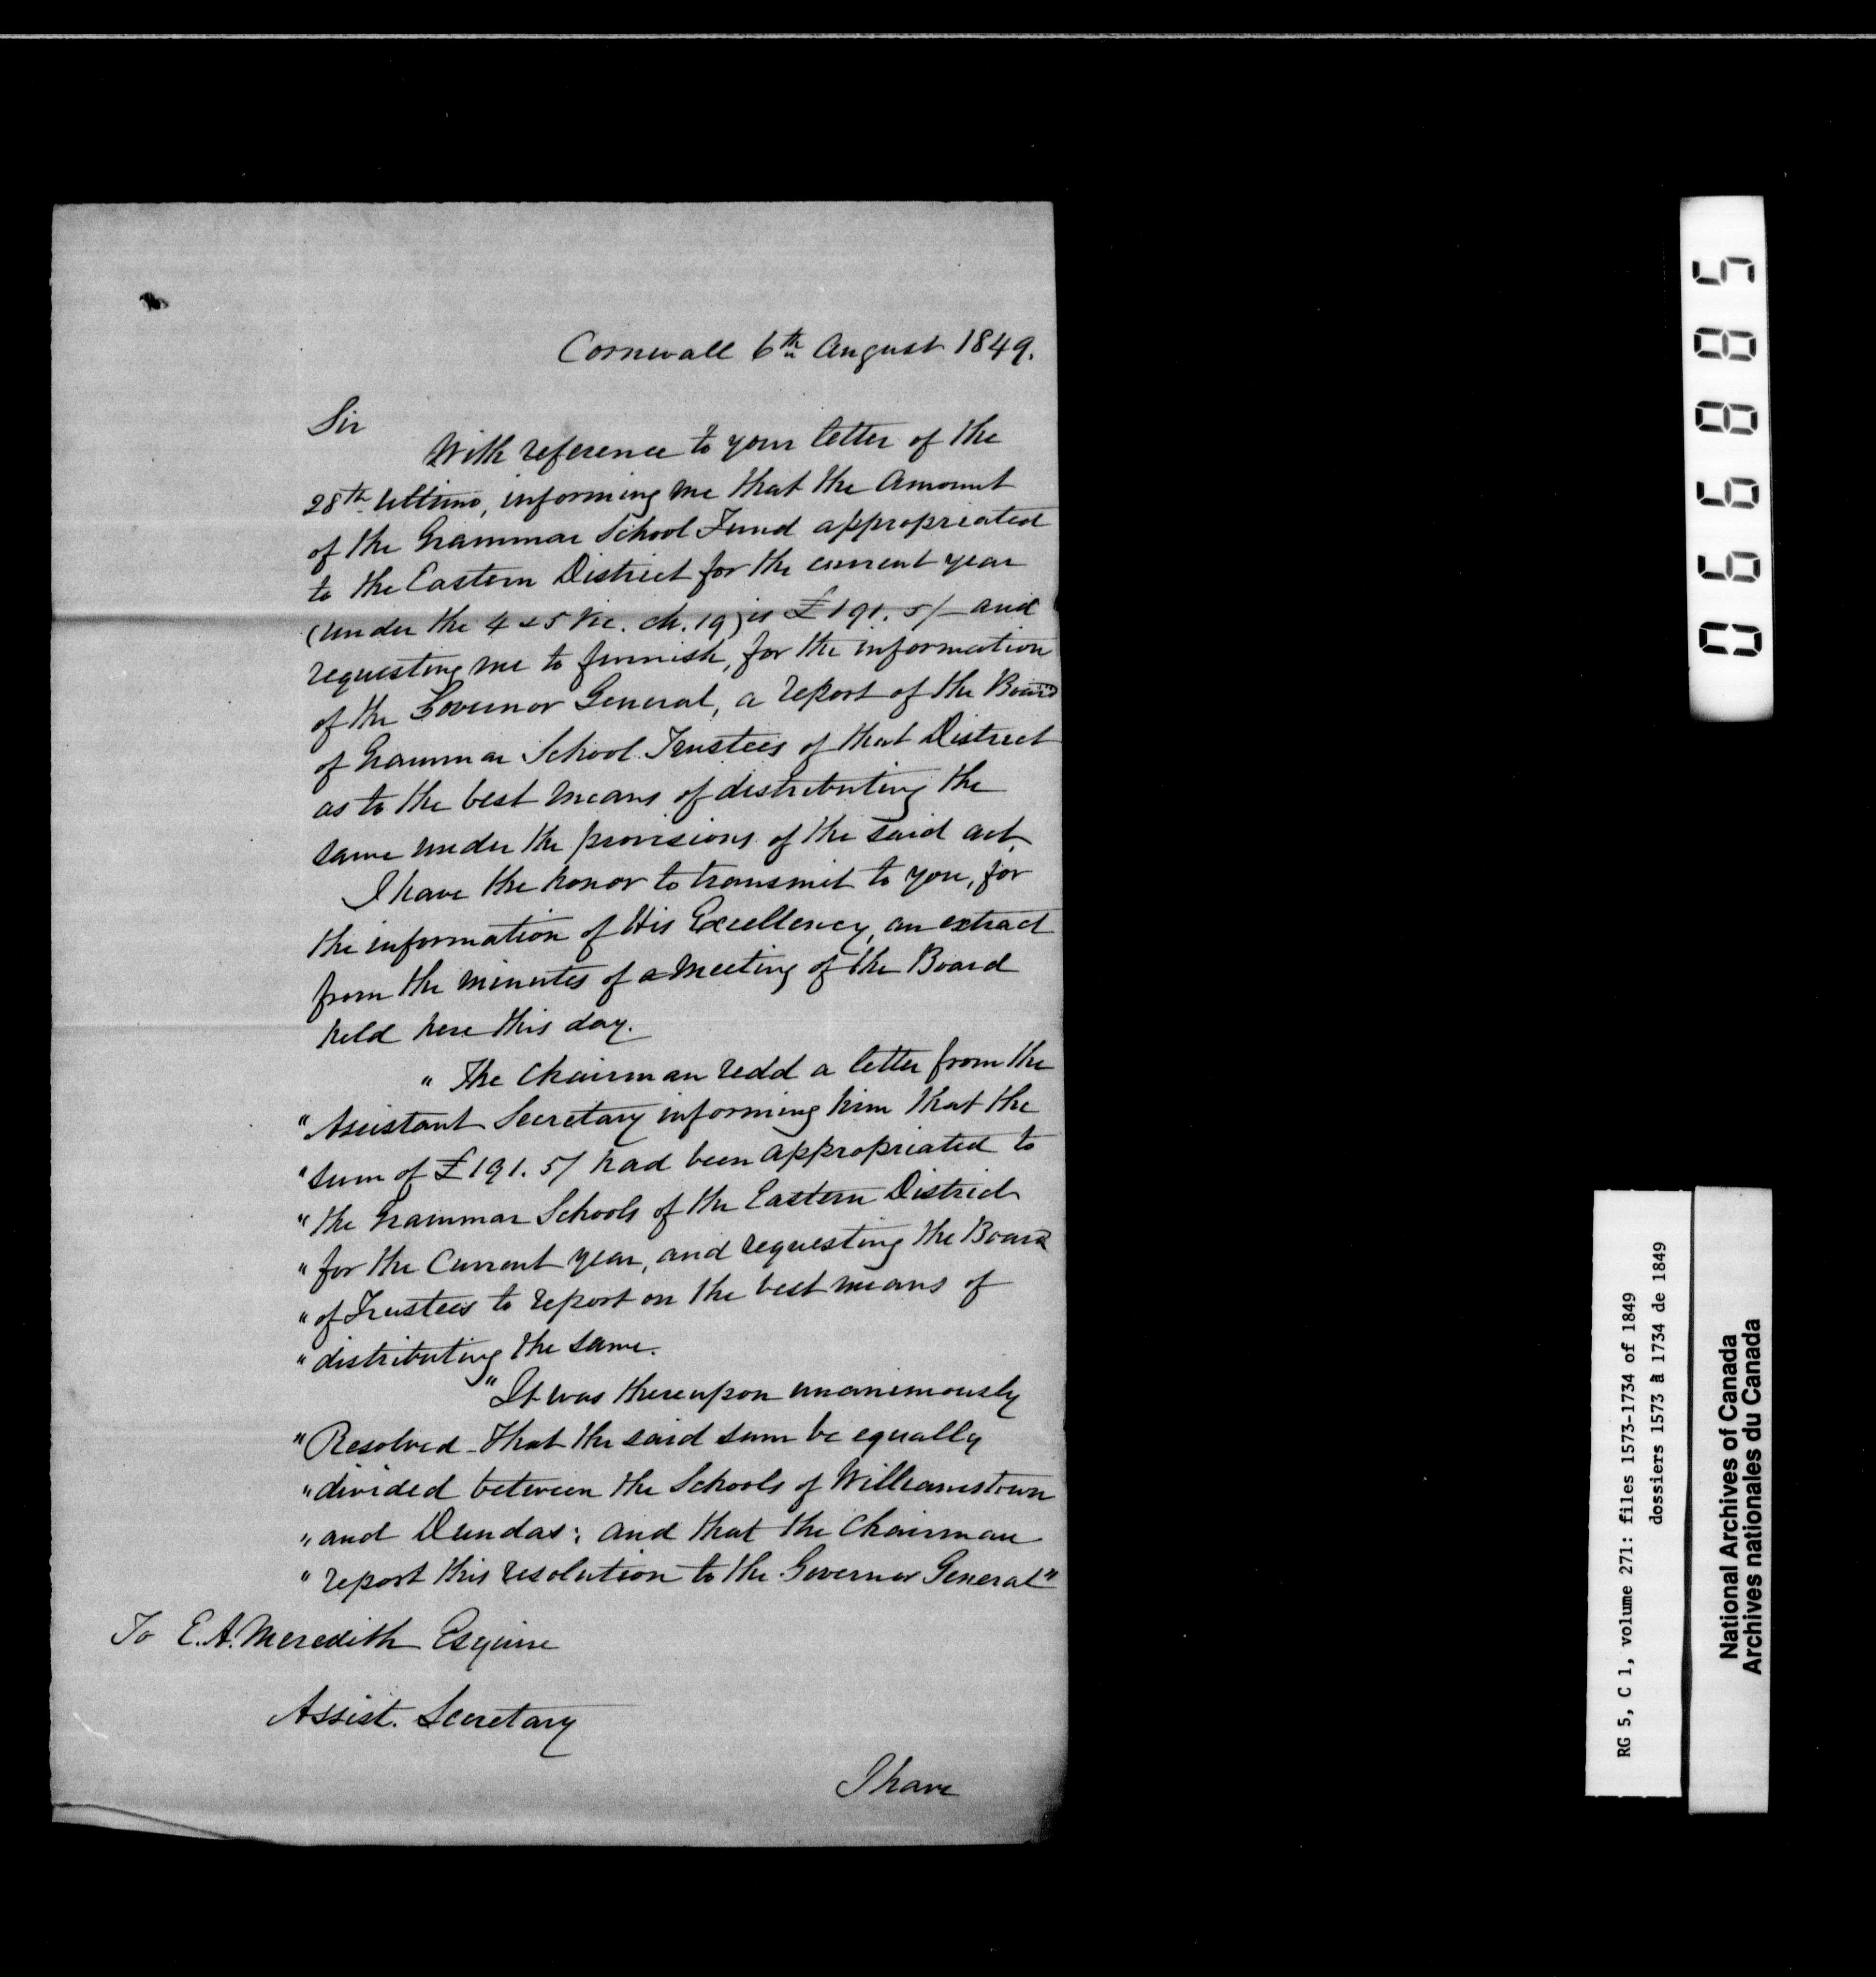 Cornwall 6th August 1849.
Sir
With reference to your letter of the
28th Ultimo, informing me that the Amount
of the Grammar School Fund appropriated
to the Eastern District for the current year
(under the 4 & 5 Vic. ch. 19) is £191. 5/- and
requesting me to furnish, for the information
of the Governor General, a report of the Board
of Grammar School Trustees of that District
as to the best means of distributing the
same under the provisions of the said act,
I have the honor to transmit to you, for
the information of His Excellency, an extract
from the minutes of a Meeting of the Board
held here this day.
" The Chairman redd a letter from the
" Assistant Secretary informing him that the
" sum of £191. 5/ had been appropriated to
" the Grammar Schools of the Eastern District
" for the Current year, and requesting the Board
" of Trustees to report on the best means of
" distributing the same.
" It was thereupon unanimously
" Resolved - That the said sum be equally
" divided between the Schools of Williamstown
" and Dundas; and that the Chairman
" report this resolution to the Governor General"
To E. A. Meredith Esquire
Assist. Secretary
I have
066885
RG 5, C 1, volume 271: files 1573-1734 of 1849
dossiers 1573 à 1734 de 1849
National Archives of Canada
Archives nationales du Canada